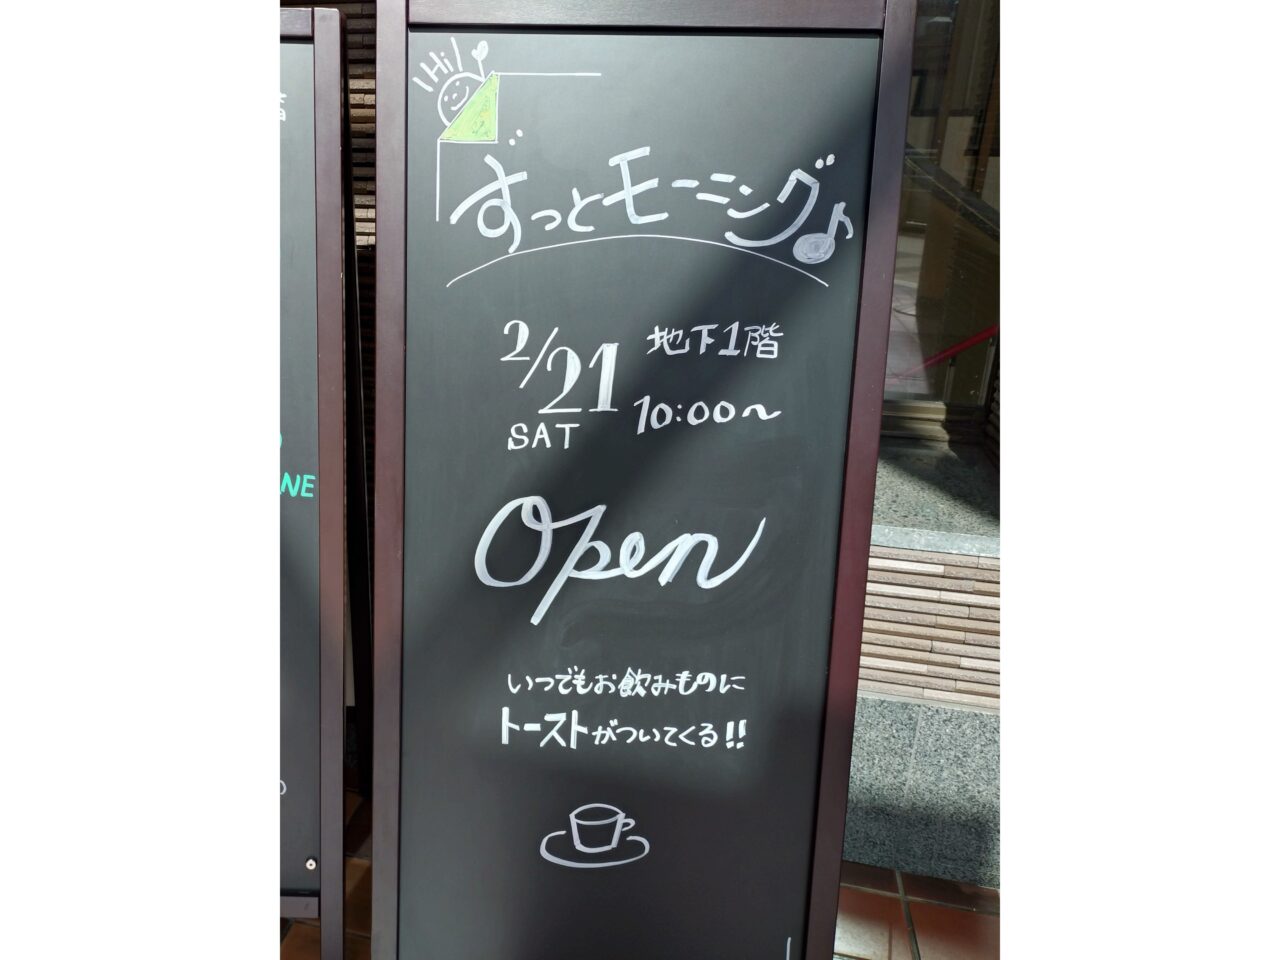 Hi!
ずっとモーニング♪
2/21
SAT
地下1階
10:00〜
Open
いつでもお飲みものに
トーストがついてくる!!
NE